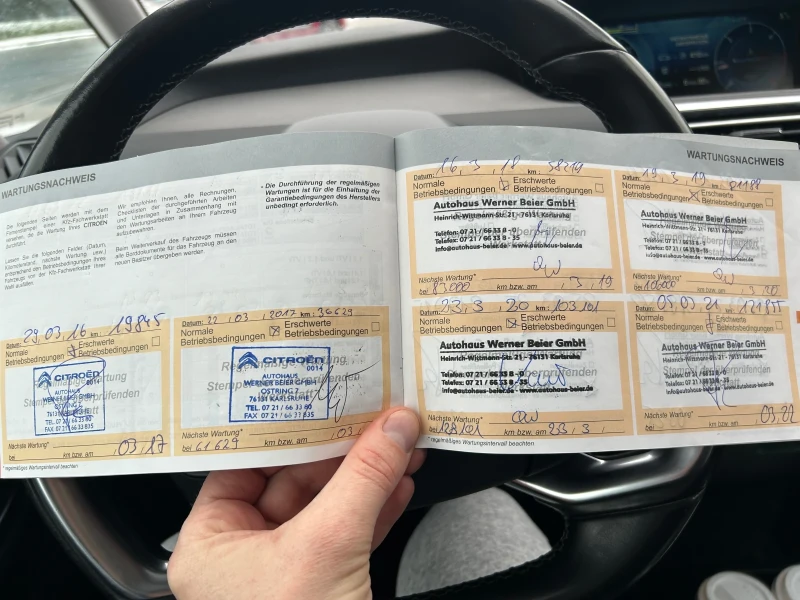 WARTUNGSNACHWEIS
Die folgenden Seiten werden mit dem
Firmenstempel einer Kfz-Fachwerkstatt
versehen, die die Wartung Ihres CITROËN
durchführt.
Lesen Sie die folgenden Felder (Datum,
Kilometerstand, nächste Wartung usw.)
entsprechend den Betriebsbedingungen Ihres
Fahrzeugs von der Kfz-Fachwerkstatt Ihrer
Wahl ausfüllen.
Wir empfehlen Ihnen, alle Rechnungen,
Checklisten der durchgeführten Arbeiten
und Unterlagen in Zusammenhang mit
den Wartungsarbeiten an Ihrem Fahrzeug
aufzubewahren.
Beim Weiterverkauf des Fahrzeugs müssen
alle Borddokumente für das Fahrzeug an den
neuen Besitzer übergeben werden.
• Die Durchführung der regelmäßigen
Wartungen ist für die Einhaltung der
Garantiebedingungen des Herstellers
unbedingt erforderlich.
29.03.16 19845
Normale Erschwerte
Betriebsbedingungen Betriebsbedingungen
CITROËN
0014
AUTOHAUS
WERNER BEIER GMBH
OSTRING 7
76131 KARLSRUHE
TEL. 07 21 / 66 33 80
FAX 07 21 / 66 33 835
Nächste Wartung*
bei km bzw. am 03.17
* regelmäßiges Wartungsintervall beachten
Datum: 22.03.2017 km: 36629
Normale Erschwerte
Betriebsbedingungen Betriebsbedingungen
CITROËN
0014
AUTOHAUS
WERNER BEIER GMBH
OSTRING 7
76131 KARLSRUHE
TEL. 07 21 / 66 33 80
FAX 07 21 / 66 33 835
Nächste Wartung*
bei 61629 km bzw. am .03.
WARTUNGSNACHWEIS
Datum: 16.3.18 km: 58219
Normale Erschwerte
Betriebsbedingungen Betriebsbedingungen
Autohaus Werner Beier GmbH
Heinrich-Wittmann-Str. 21 - 76131 Karlsruhe
Telefon: 07 21 / 66 33 8 - 0
Telefax: 07 21 / 66 33 8 - 35
info@autohaus-beier.de - www.autohaus-beier.de
Nächste Wartung*
bei 83000 km bzw. am .3.19
Datum: 19.3.19 km:
Normale Erschwerte
Betriebsbedingungen Betriebsbedingungen
Autohaus Werner Beier GmbH
Heinrich-Wittmann-Str. 21 - 76131 Karlsruhe
Telefon: 07 21 / 66 33 8 - 0
Telefax: 07 21 / 66 33 8 - 35
info@autohaus-beier.de - www.autohaus-beier.de
Nächste Wartung*
bei km bzw. am .3.20
Datum: 23.3.20 km: 103101
Normale Erschwerte
Betriebsbedingungen Betriebsbedingungen
Autohaus Werner Beier GmbH
Heinrich-Wittmann-Str. 21 - 76131 Karlsruhe
Telefon: 07 21 / 66 33 8 - 0
Telefax: 07 21 / 66 33 8 - 35
info@autohaus-beier.de - www.autohaus-beier.de
Nächste Wartung*
bei 128101 km bzw. am 23.3.
* regelmäßiges Wartungsintervall beachten
Datum: 05.03.21 km:
Normale Erschwerte
Betriebsbedingungen Betriebsbedingungen
Autohaus Werner Beier GmbH
Heinrich-Wittmann-Str. 21 - 76131 Karlsruhe
Telefon: 07 21 / 66 33 8 - 0
Telefax: 07 21 / 66 33 8 - 35
info@autohaus-beier.de - www.autohaus-beier.de
Nächste Wartung*
bei km bzw. am 03.22